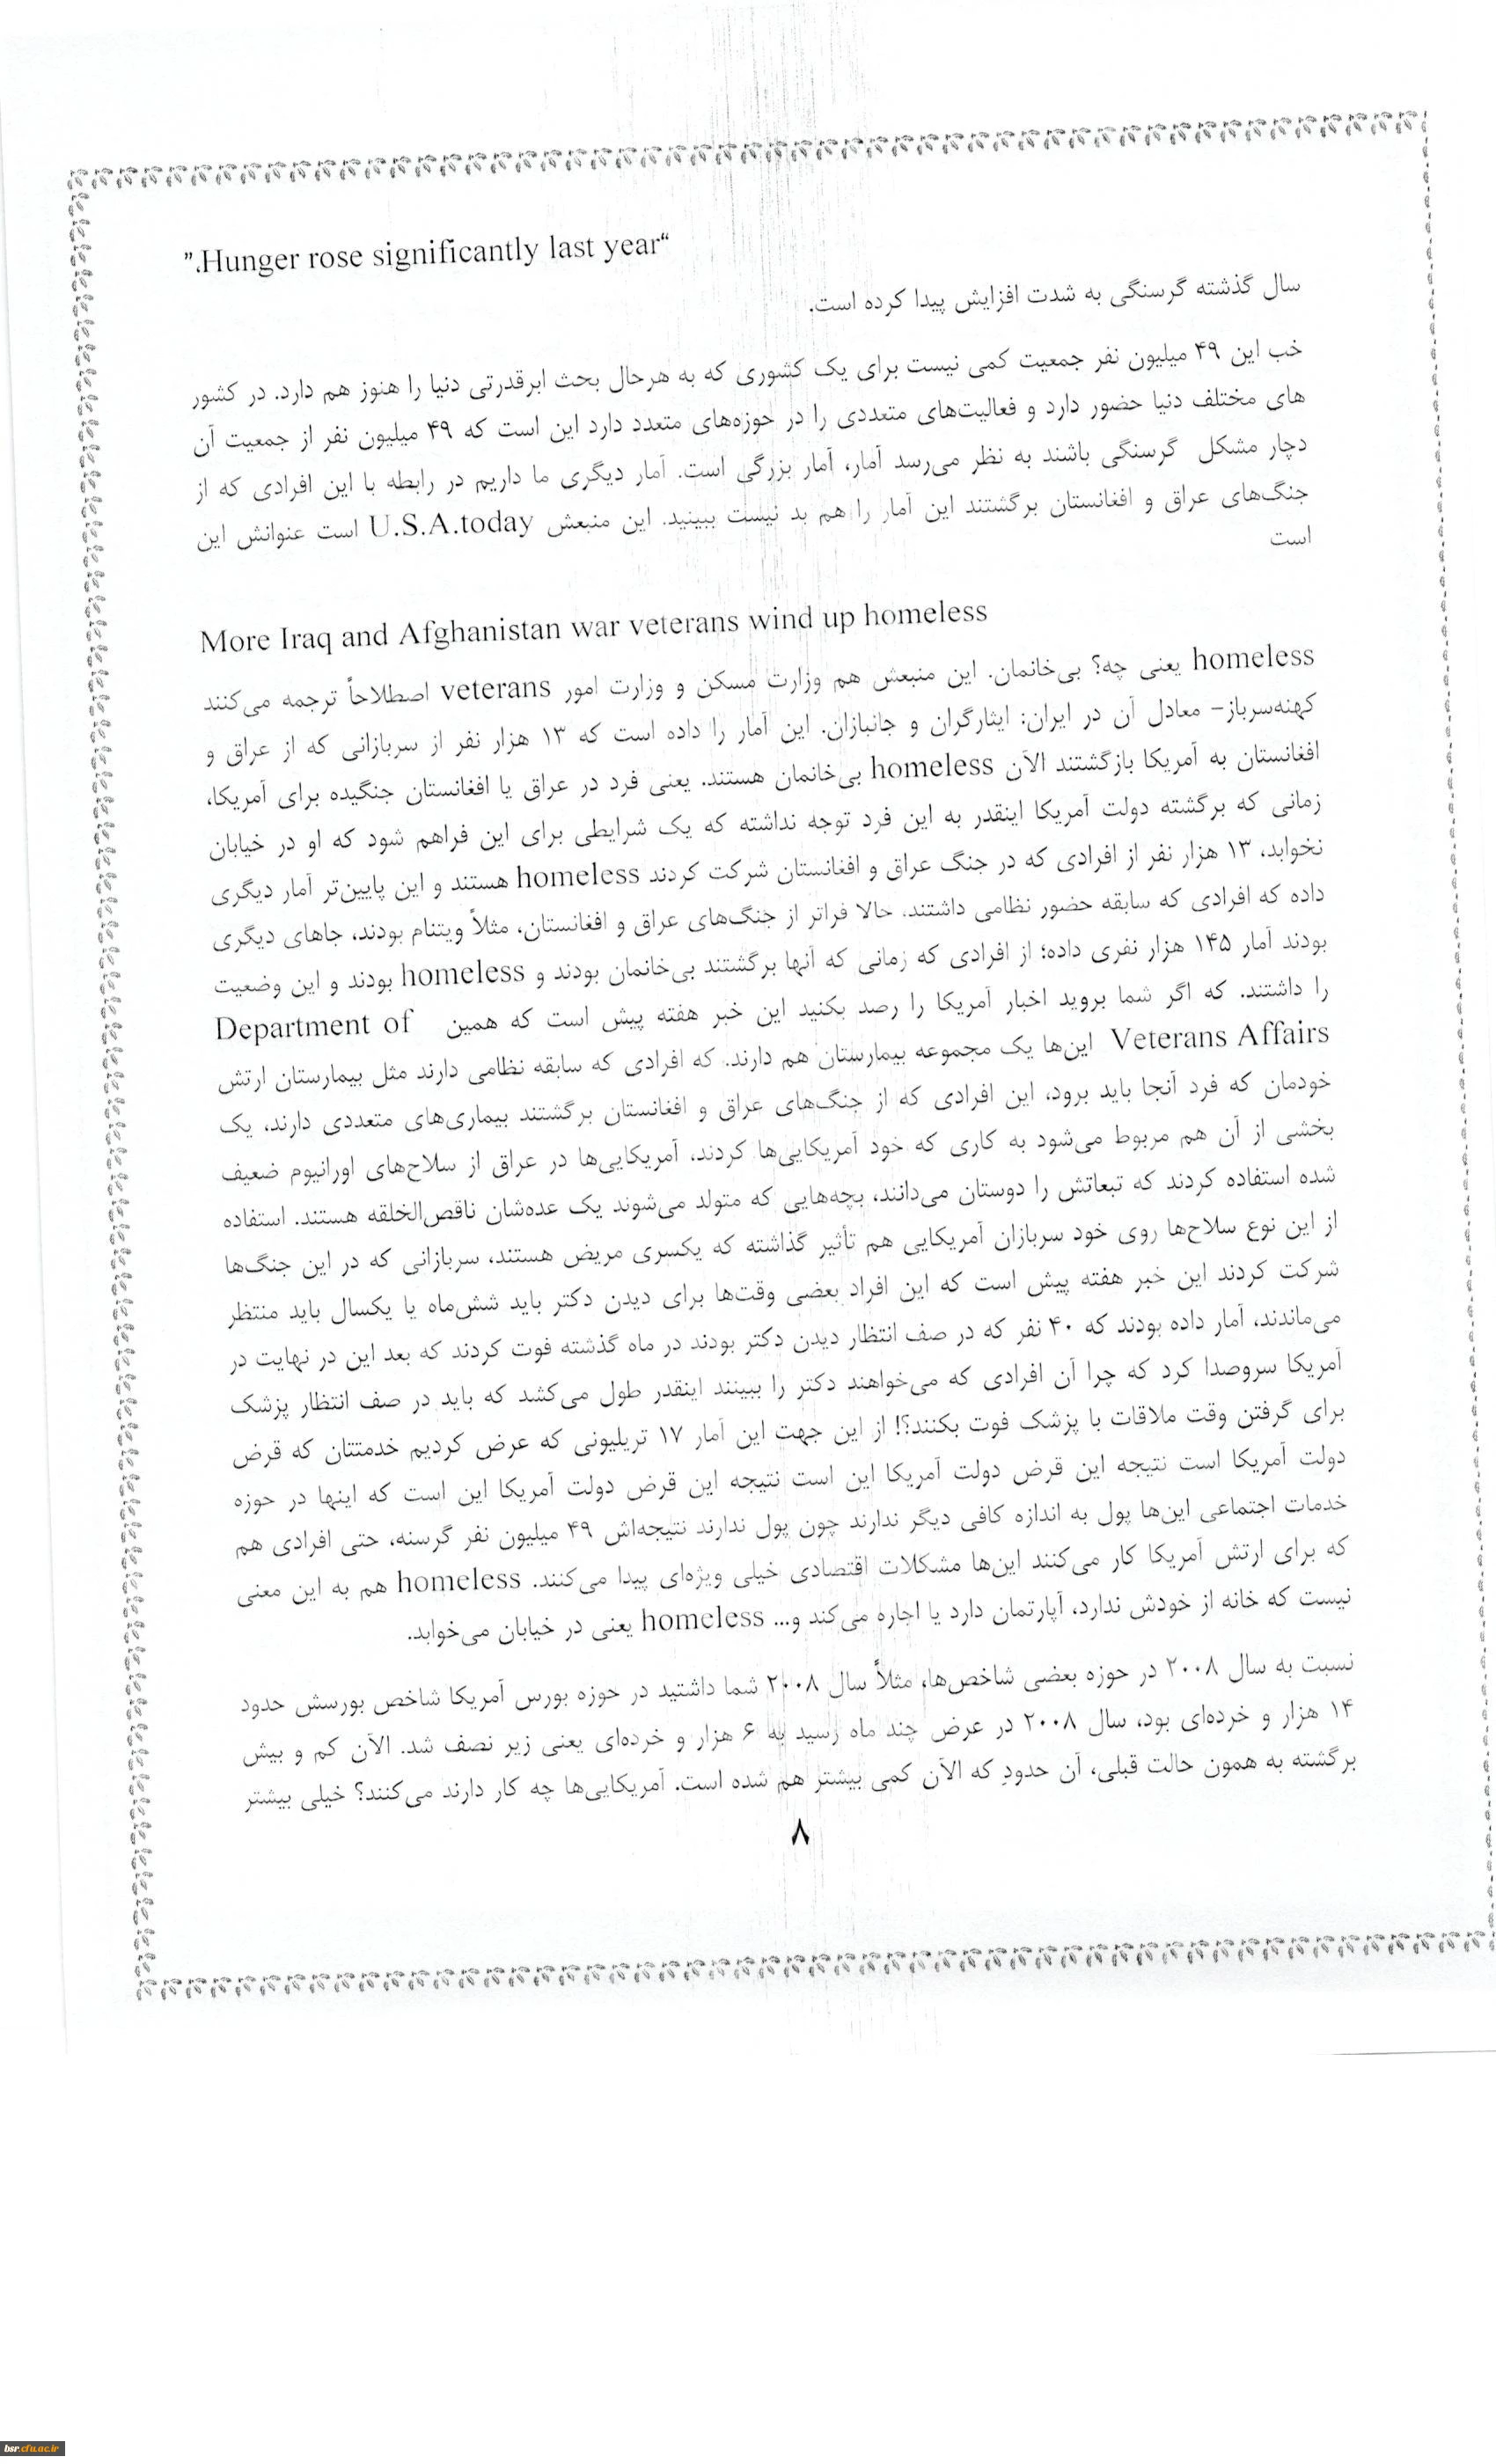 “Hunger rose significantly last year.”
سال گذشته گرسنگی به شدت افزایش پیدا کرده است.
خب این ۴۹ میلیون نفر جمعیت کمی نیست برای یک کشوری که به هرحال بحث ابرقدرتی دنیا را هنوز هم دارد. در کشور
های مختلف دنیا حضور دارد و فعالیت‌های متعددی را در حوزه‌های متعدد دارد این است که ۴۹ میلیون نفر از جمعیت آن
دچار مشکل گرسنگی باشند به نظر می‌رسد آمار، آمار بزرگی است. آمار دیگری ما داریم در رابطه با این افرادی که از
جنگ‌های عراق و افغانستان برگشتند این آمار را هم بد نیست ببینید. این منبعش U.S.A.today است عنوانش این
است
More Iraq and Afghanistan war veterans wind up homeless
homeless یعنی چه؟ بی‌خانمان. این منبعش هم وزارت مسکن و وزارت امور veterans اصطلاحاً ترجمه می‌کنند
کهنه‌سرباز- معادل آن در ایران: ایثارگران و جانبازان. این آمار را داده است که ۱۳ هزار نفر از سربازانی که از عراق و
افغانستان به آمریکا بازگشتند الآن homeless بی‌خانمان هستند. یعنی فرد در عراق یا افغانستان جنگیده برای آمریکا،
زمانی که برگشته دولت آمریکا اینقدر به این فرد توجه نداشته که یک شرایطی برای این فراهم شود که او در خیابان
نخوابد، ۱۳ هزار نفر از افرادی که در جنگ عراق و افغانستان شرکت کردند homeless هستند و این پایین‌تر آمار دیگری
داده که افرادی که سابقه حضور نظامی داشتند. حالا فراتر از جنگ‌های عراق و افغانستان، مثلاً ویتنام بودند، جاهای دیگری
بودند آمار ۱۴۵ هزار نفری داده؛ از افرادی که زمانی که آنها برگشتند بی‌خانمان بودند و homeless بودند و این وضعیت
را داشتند. که اگر شما بروید اخبار آمریکا را رصد بکنید این خبر هفته پیش است که همین Department of
Veterans Affairs این‌ها یک مجموعه بیمارستان هم دارند. که افرادی که سابقه نظامی دارند مثل بیمارستان ارتش
خودمان که فرد آنجا باید برود، این افرادی که از جنگ‌های عراق و افغانستان برگشتند بیماری‌های متعددی دارند، یک
بخشی از آن هم مربوط می‌شود به کاری که خود آمریکایی‌ها کردند، آمریکایی‌ها در عراق از سلاح‌های اورانیوم ضعیف
شده استفاده کردند که تبعاتش را دوستان می‌دانند، بچه‌هایی که متولد می‌شوند یک عده‌شان ناقص‌الخلقه هستند. استفاده
از این نوع سلاح‌ها روی خود سربازان آمریکایی هم تأثیر گذاشته که یکسری مریض هستند، سربازانی که در این جنگ‌ها
شرکت کردند این خبر هفته پیش است که این افراد بعضی وقت‌ها برای دیدن دکتر باید شش‌ماه یا یکسال باید منتظر
می‌ماندند، آمار داده بودند که ۴۰ نفر که در صف انتظار دیدن دکتر بودند در ماه گذشته فوت کردند که بعد این در نهایت در
آمریکا سروصدا کرد که چرا آن افرادی که می‌خواهند دکتر را ببینند اینقدر طول می‌کشد که باید در صف انتظار پزشک
برای گرفتن وقت ملاقات با پزشک فوت بکنند؟! از این جهت این آمار ۱۷ تریلیونی که عرض کردیم خدمتتان که قرض
دولت آمریکا است نتیجه این قرض دولت آمریکا این است نتیجه این قرض دولت آمریکا این است که اینها در حوزه
خدمات اجتماعی این‌ها پول به اندازه کافی دیگر ندارند چون پول ندارند نتیجه‌اش ۴۹ میلیون نفر گرسنه، حتی افرادی هم
که برای ارتش آمریکا کار می‌کنند این‌ها مشکلات اقتصادی خیلی ویژه‌ای پیدا می‌کنند. homeless هم به این معنی
نیست که خانه از خودش ندارد، آپارتمان دارد یا اجاره می‌کند و... homeless یعنی در خیابان می‌خوابد.
نسبت به سال ۲۰۰۸ در حوزه بعضی شاخص‌ها، مثلاً سال ۲۰۰۸ شما داشتید در حوزه بورس آمریکا شاخص بورسش حدود
۱۴ هزار و خرده‌ای بود، سال ۲۰۰۸ در عرض چند ماه رسید به ۶ هزار و خرده‌ای یعنی زیر نصف شد. الآن کم و بیش
برگشته به همون حالت قبلی، آن حدودِ که الآن کمی بیشتر هم شده است. آمریکایی‌ها چه کار دارند می‌کنند؟ خیلی بیشتر
۸
bsr.cfu.ac.ir